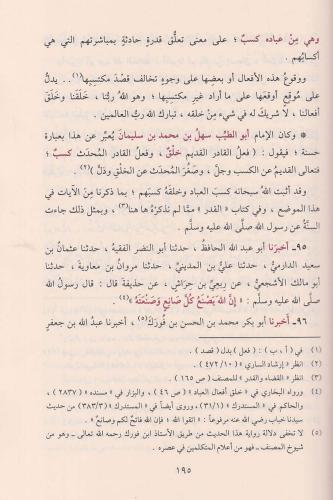 وهي مِنْ عباده كسبٌ ؛ على معنى تعلُّق قدرةٍ حادثةٍ بمباشرتهم التي هي
أكسابُهم .
ووقوعُ هذه الأفعال أو بعضِها على وجوهٍ تخالف قصْدَ مكتسبِها(١).. يدلُّ
على مُوقِعٍ أوقعَها على ما أراد غيرِ مكتسِبِها ؛ وهو اللهُ ربُّنا ، خلَقَنا وخلَق
أفعالنا ، لا شريكَ له في شيءٍ مِنْ خلقه ، تبارك الله ربُّ العالمين .
* وكان الإمام أبو الطيِّب سهلُ بن محمد بن سليمان يُعبِّر عن هذا بعبارة
حسنة ؛ فيقول : ( فعلُ القادر القديم خلْقٌ ، وفعلُ القادر المُحدَث كسبٌ ؛
فتعالى القديمُ عن الكسب وجلَّ ، وصغُرَ المُحدَثُ عن الخلْقِ وذلَّ )(٢) .
وقد أثبتَ اللهُ سبحانه كسبَ العباد وخلقَهُ كسبَهم ؛ بما ذكرنا مِنَ الآيات في
هذا الموضع ، وفي كتاب « القدر » ممَّا لم نذكرْهُ ها هنا(٣) ، وبمثل ذلك جاءت
السنَّةُ عن رسول الله صلَّى الله عليه وسلَّم .
٩٥- أخبرَنا أبو عبد الله الحافظ ، حدثنا أبو النضر الفقيهُ ، حدثنا عثمانُ بن
سعيد الدارميُّ ، حدثنا عليُّ بن المدينيِّ ، حدثنا مروانُ بن معاوية ، حدثنا
أبو مالك الأشجعيُّ ، عن رِبعيِّ بن حِراشٍ ، عن حذيفةَ قال : قال رسولُ الله
صلَّى الله عليه وسلَّم : « إنَّ اللهَ يَصْنَعُ كُلَّ صانِعٍ وَصَنْعَتَهُ »(٤) .
٩٦- أخبرنا أبو بكر محمد بن الحسن بن فُورَكَ(٥) ، أخبرنا عبدُ الله بن جعفرٍ
(١) في ( أ ، ب ) : ( فعل ) بدل ( قصد ) .
(٢) انظر « إرشاد الساري » ( ٤٧٢/١٠ ) .
(٣) انظر « القضاء والقدر » للمصنف ( ص ١٦٥ ) .
(٤) ورواه البخاري في « خلق أفعال العباد » ( ص ٤٦ ) ، والبزار في « مسنده » ( ٢٨٣٧ ) ،
والحاكم في « المستدرك » ( ٣١/١ ) ، وروى أيضاً في « المستدرك » ( ٣٨٣/٣ ) من حديث
سيدنا خباب رضي الله عنه مرفوعاً : « اتقوا الله ؛ فإن الله فاتحٌ لكم وصانع » .
(٥) لا تخفى دلالة رواية هذا الحديث من طريق الأستاذ ابن فورك رحمه الله تعالى ـ وهو من
شيوخ المصنف ـ فهو من أعلام المتكلمين في عصره .
١٩٥